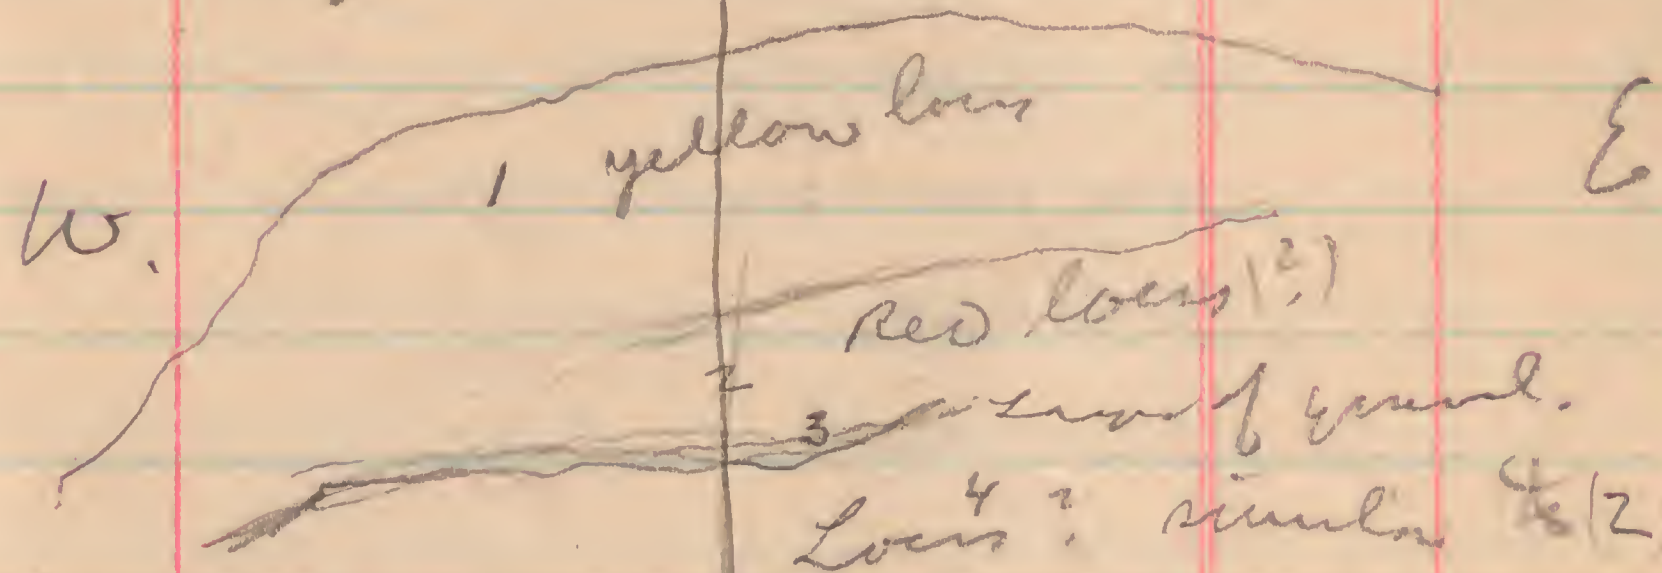 1 yellow loess
E
W.
Red loess (?)
2
3 Layer of gravel.
4
Loess? similar to (2